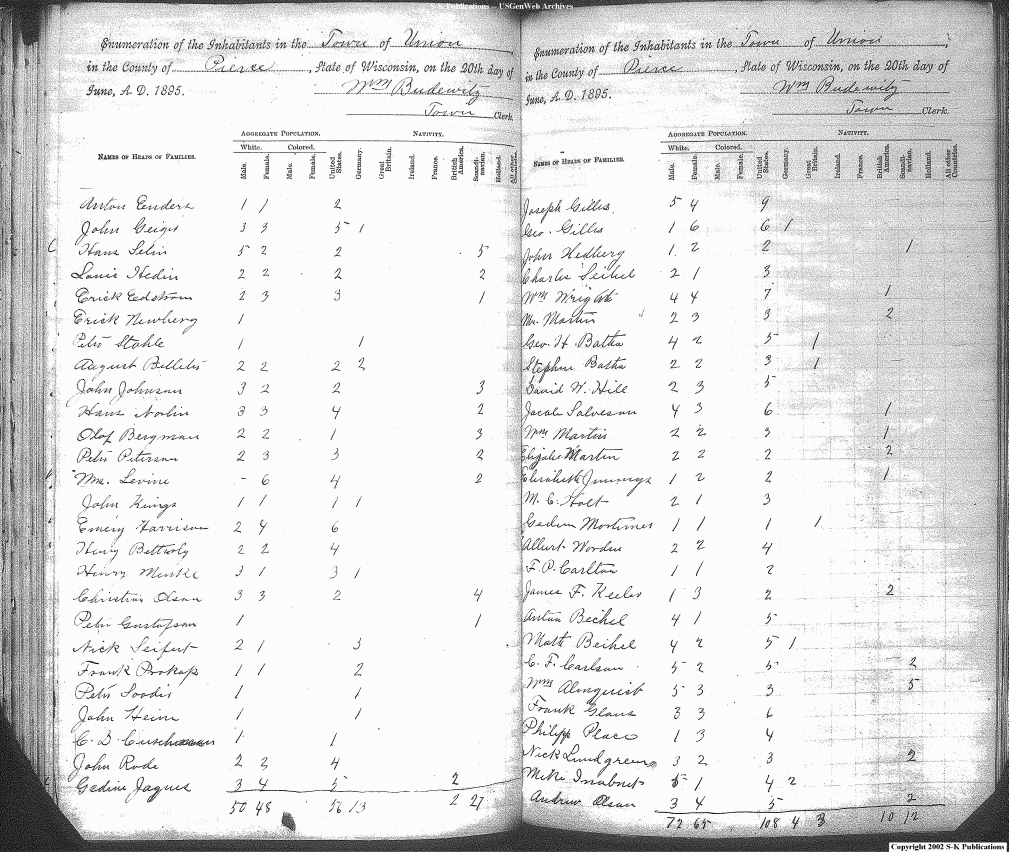 S-K Publications -- USGenWeb Archives
Enumeration of the Inhabitants in the Town of Union
in the County of Pierce, State of Wisconsin, on the 20th day of
June, A. D. 1895.
Wm Budewitz
Town Clerk.
AGGREGATE POPULATION. NATIVITY.
White. Colored.
NAMES OF HEADS OF FAMILIES. Male. Female. Male. Female. United States. Germany. Great Britain. Ireland. France. British America. Scandinavian. Holland. All other
Anton Enders 1 1 2
John Geiger 3 3 5 1
Hans 5 2 2 5
Louis Hedin 2 2 2 2
Erick Eedstrom 2 3 3 1
Erick Newberg 1
Peter Stahle 1 1
August 2 2 2 2
John Johnson 3 2 2 3
Hans Norlin 3 3 4 2
Olof Bergman 2 2 1 3
Peter Peterson 2 3 3 2
Mrs. Levine - 6 4 2
John Kings 1 1 1 1
Emery Harrison 2 4 6
Henry 2 2 4
Henry Menke 3 1 3 1
Christian Olson 3 3 2 4
Peter Gustafson 1 1
Nick Seifert 2 1 3
Frank Prokop 1 1 2
Peter 1 1
John Heim 1 1
C. D. 1 1
John Rode 2 3 4
Gedine Jaques 3 4 5 2
50 48 56 13 2 27
Enumeration of the Inhabitants in the Town of Union,
in the County of Pierce, State of Wisconsin, on the 20th day of
June, A. D. 1895.
Wm Budewitz
Town Clerk.
AGGREGATE POPULATION. NATIVITY.
White. Colored.
NAMES OF HEADS OF FAMILIES. Male. Female. Male. Female. United States. Germany. Great Britain. Ireland. France. British America. Scandinavian. Holland. All other Countries.
Joseph Gilles 5 4 9
Geo. Gilles 1 6 6 1
John Hedberg 1 2 2 1
Charles Seibel 2 1 3
Wm Wright 4 4 7 1
Mr. Martin 2 3 3 2
Geo. H. Batha 4 2 5 1
Stephen Batha 2 2 3 1
David W. Hill 2 3 5
Jacob Salveson 4 3 6 1
Wm Martin 2 2 3 1
Martin 2 2 2 2
Elisabeth Jennings 1 2 2 1
M. C. Holt 2 1 3
Mortimer 1 1 1 1
Albert Worden 2 2 4
F. P. Carlton 1 1 2
James F. Keeler 1 3 2 2
Anton Bechel 4 1 5
Matt Beihel 4 2 5 1
C. F. Carlson 5 2 5 2
Wm Almquist 5 3 3 5
Frank Glaus 3 3 6
Philipp Place 1 3 4
Nick Lundgreen 3 2 3 2
Mike 5 1 4 2
Andrew Olson 3 4 5 2
72 65 108 4 3 10 12
Copyright 2002 S-K Publications